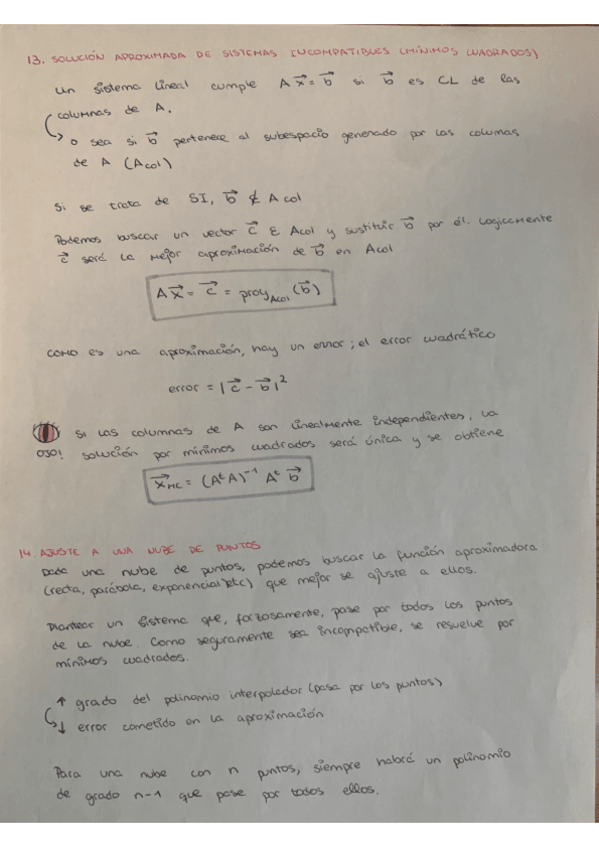 13. SOLUCIÓN APROXIMADA DE SISTEMAS INCOMPATIBLES (MÍNIMOS CUADRADOS)
Un sistema lineal cumple A x⃗ = b⃗ si b⃗ es CL de las
columnas de A.
o sea si b⃗ pertenece al subespacio generado por las columas
de A (Acol)
Si se trata de SI, b⃗ ∉ A col
Podemos buscar un vector c⃗ ∈ Acol y sustituir b⃗ por él. Logicamente
c⃗ será la mejor aproximación de b⃗ en Acol
A x⃗ = c⃗ = proy_Acol (b⃗)
Como es una aproximación, hay un error; el error cuadrático
error = |c⃗ - b⃗|²
Si las columnas de A son linealmente independientes, la
OJO! solución por mínimos cuadrados será única y se obtiene
x⃗_MC = (AᵗA)⁻¹ Aᵗ b⃗
14. AJUSTE A UNA NUBE DE PUNTOS
Dada una nube de puntos, podemos buscar la función aproximadora
(recta, parábola, exponencial etc) que mejor se ajuste a ellos.
Plantear un sistema que, forzosamente, pase por todos los puntos
de la nube. Como seguramente sea incompatible, se resuelve por
mínimos cuadrados.
↑ grado del polinomio interpolador (pasa por los puntos)
↓ error cometido en la aproximación
Para una nube con n puntos, siempre habrá un polinomio
de grado n-1 que pase por todos ellos.